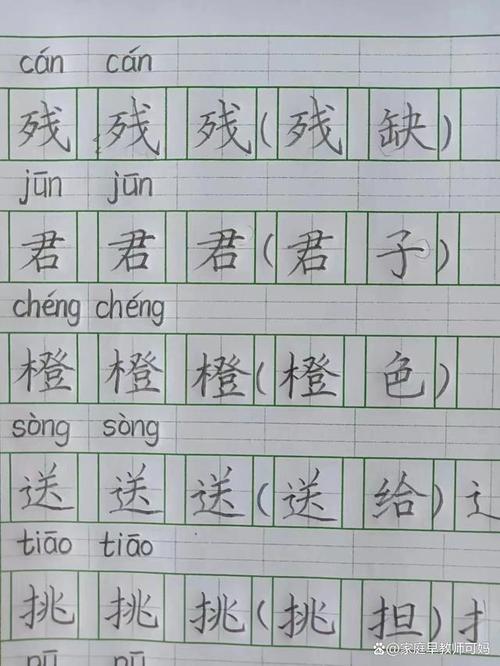 cán cán
残 残 残(残缺)
jūn jūn
君 君 君(君子)
chéng chéng
橙 橙 橙(橙色)
sòng sòng
送 送 送(送给)
tiāo tiāo
挑 挑 挑(挑担)
@家庭早教师可妈